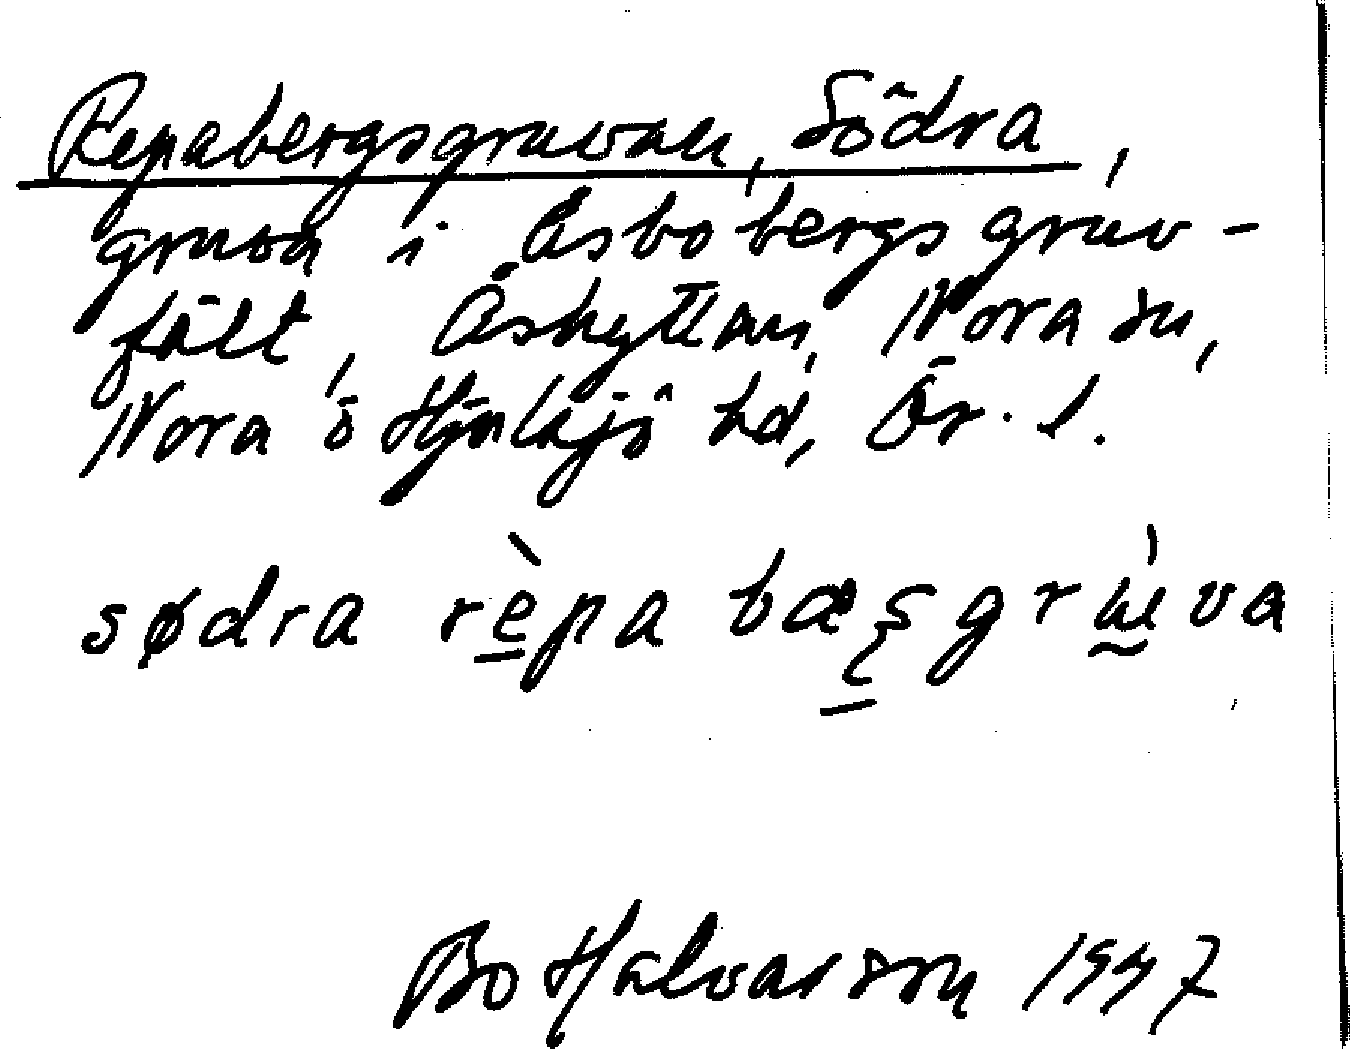 Repabergsgruvan, Södra,
gruva i Åsbobergs gruv-
fält, Åshyttan, Nora sn,
Nora o Hjulsjö hd, Ör. l.
sødra rèpa bæʂgrùva
Bo Halvarsson 1997